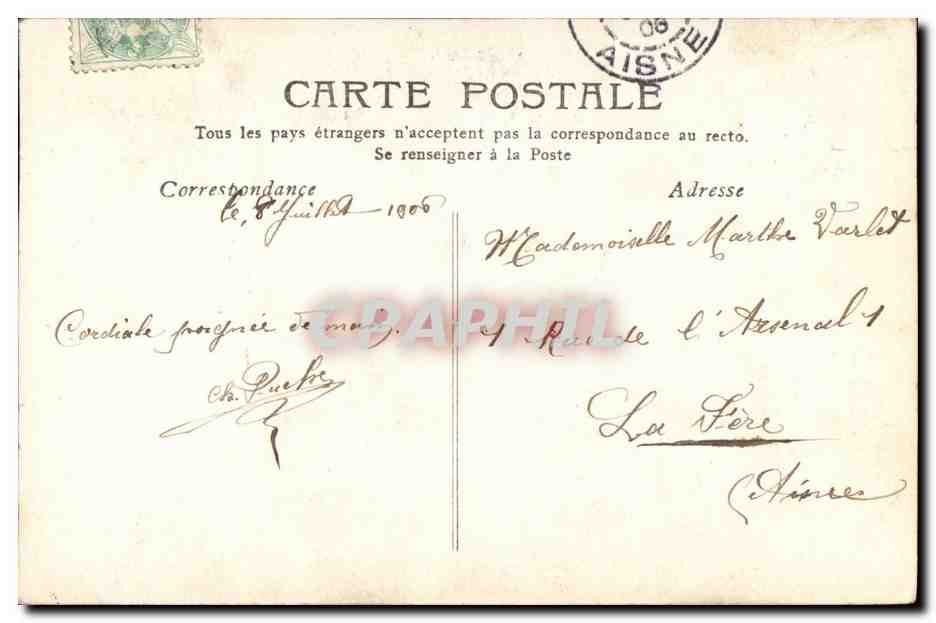 06
AISNE
CARTE POSTALE
Tous les pays étrangers n'acceptent pas la correspondance au recto.
Se renseigner à la Poste
Correspondance
le, 8 Juillet 1906
Cordiale poignée de main.
Ch.
Adresse
Mademoiselle Marthe Varlet
Rue de l'Arsenal
La Fère
(Aisne)
CPAPHIL